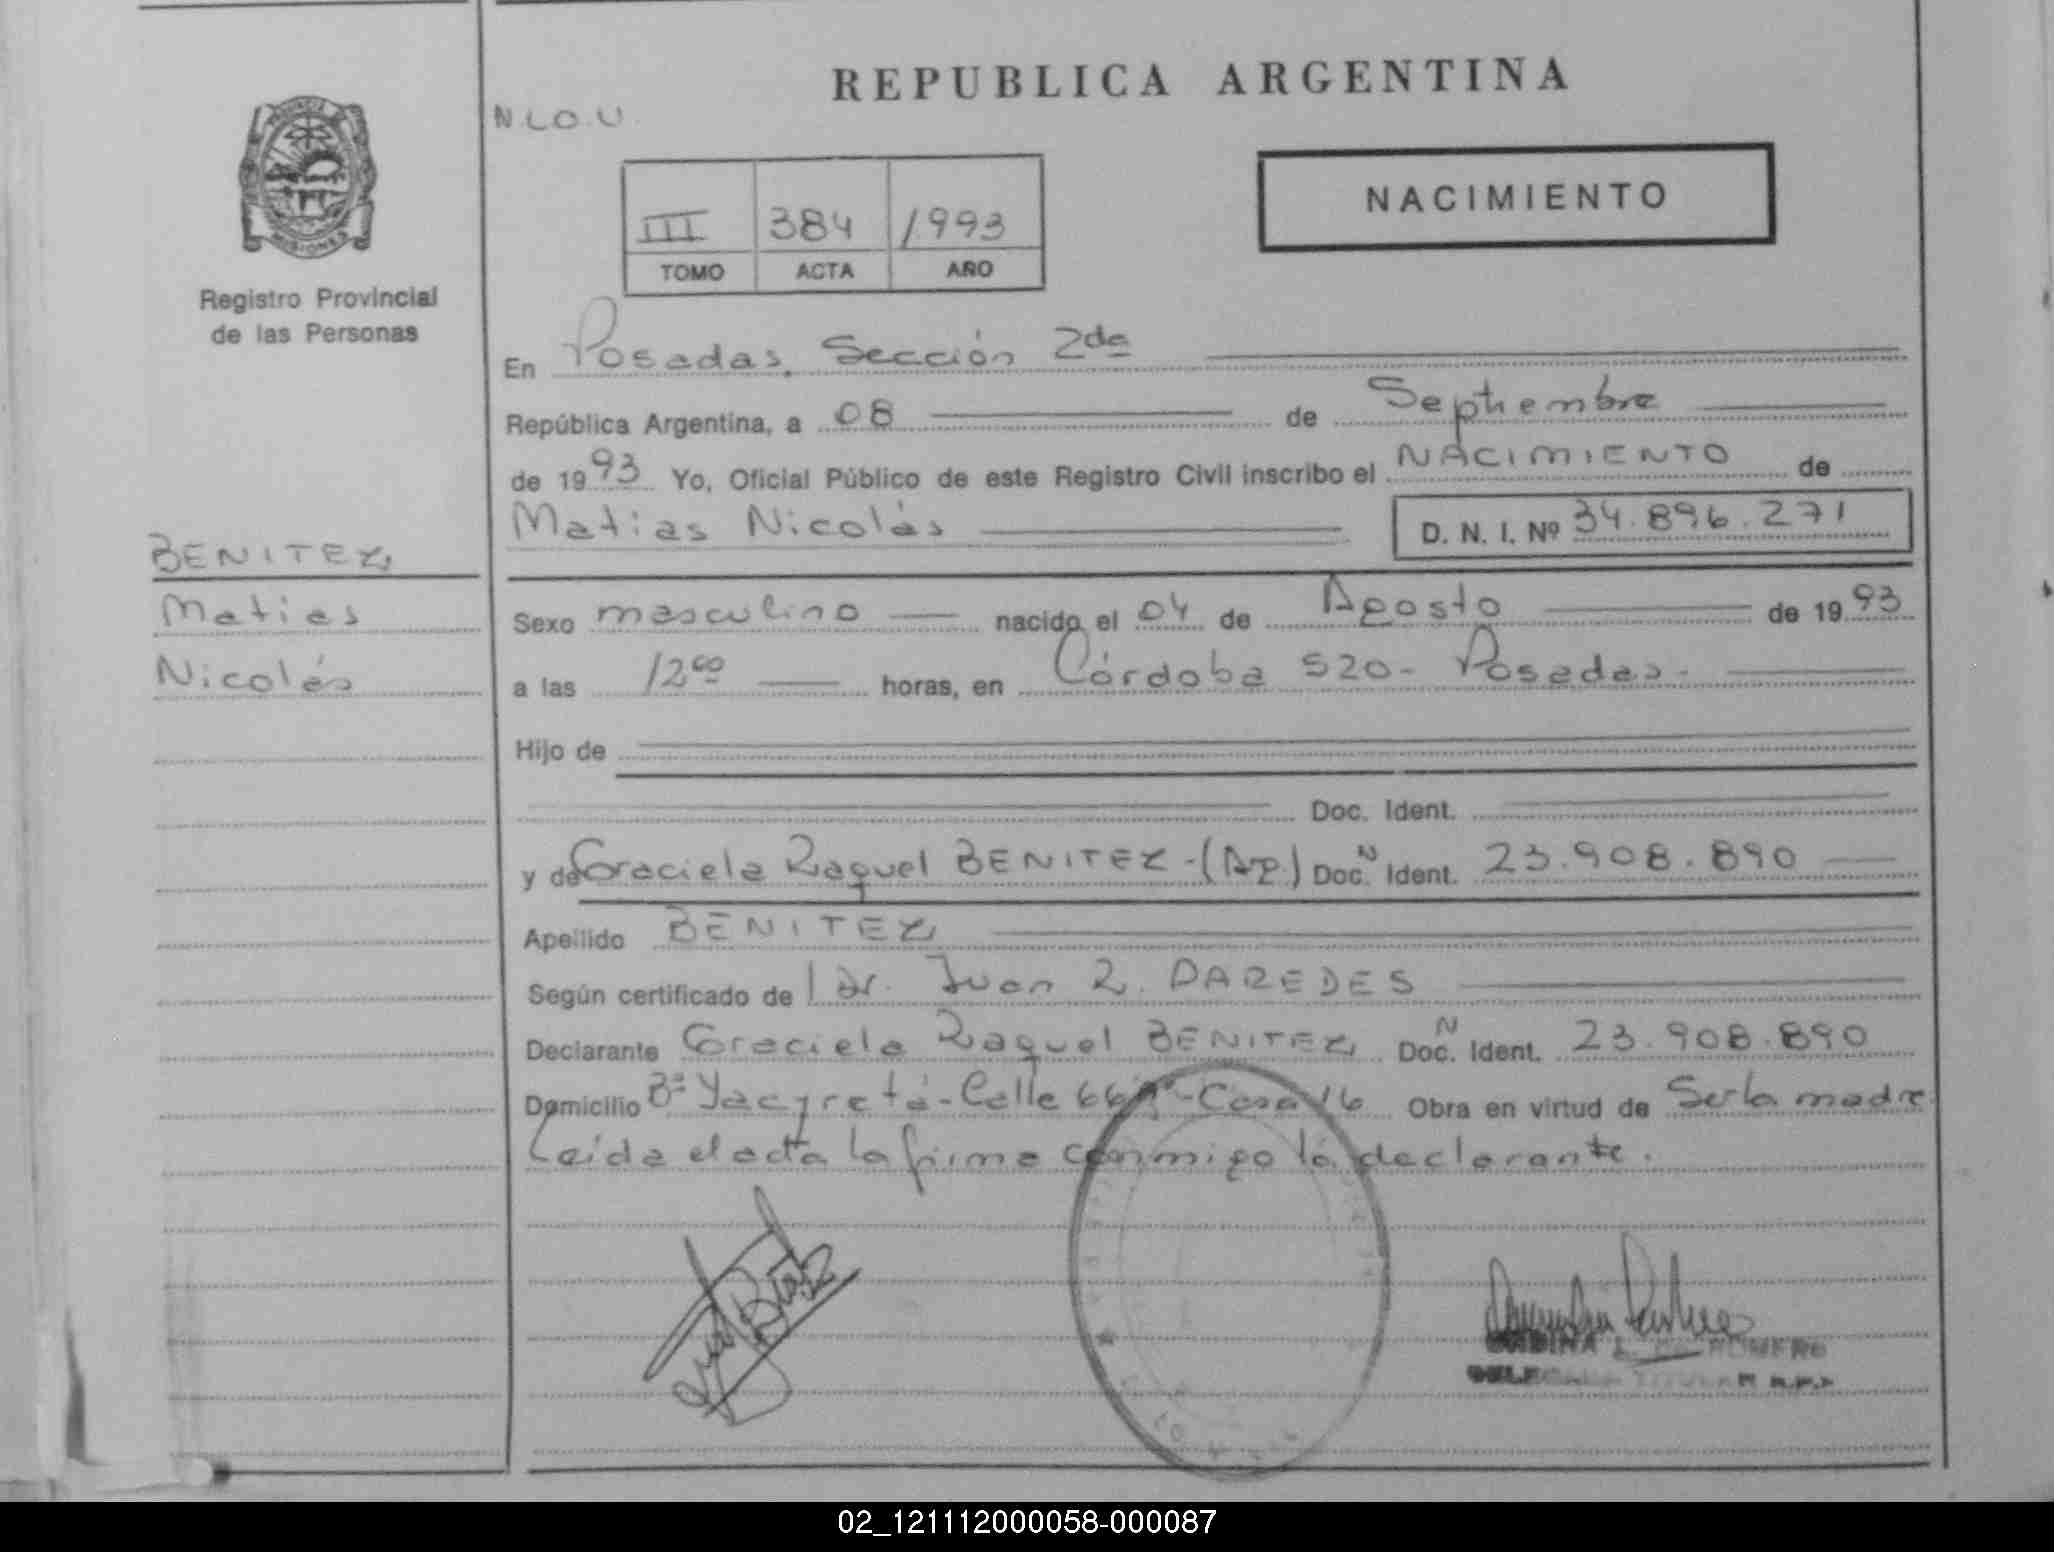 REPUBLICA ARGENTINA
N.L.O.U.
NACIMIENTO
III 384 1993
TOMO ACTA AÑO
PROVINCIA
MISIONES
Registro Provincial
de las Personas
En Posadas, Sección 2da
República Argentina, a 08 de Septiembre
de 1993 Yo, Oficial Público de este Registro Civil inscribo el NACIMIENTO de
Matias Nicolás D. N. I. Nº 34.896.271
BENITEZ
Matias
Nicolás
Sexo masculino nacido el 04 de Agosto de 1993
a las 12 00 horas, en Córdoba 520- Posadas.
Hijo de
Doc. Ident.
y de Graciela Raquel BENITEZ -(Ap.) Doc. N Ident. 23.908.890
Apellido BENITEZ
Según certificado de Dr. Juan R. PAREDES
Declarante Graciela Raquel BENITEZ Doc. N Ident. 23.908.890
Domicilio Bº Yacyretá - Calle 66 - Casa 16 Obra en virtud de Ser la madre
Leída el acta la firma conmigo la declarante.
ROMERO
TITULAR R.P.P
02_121112000058-000087